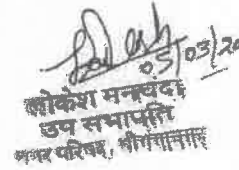 05/03/20
लोकेश मनचंदा
उप सभापति
नगर परिषद, श्रीगंगानगर